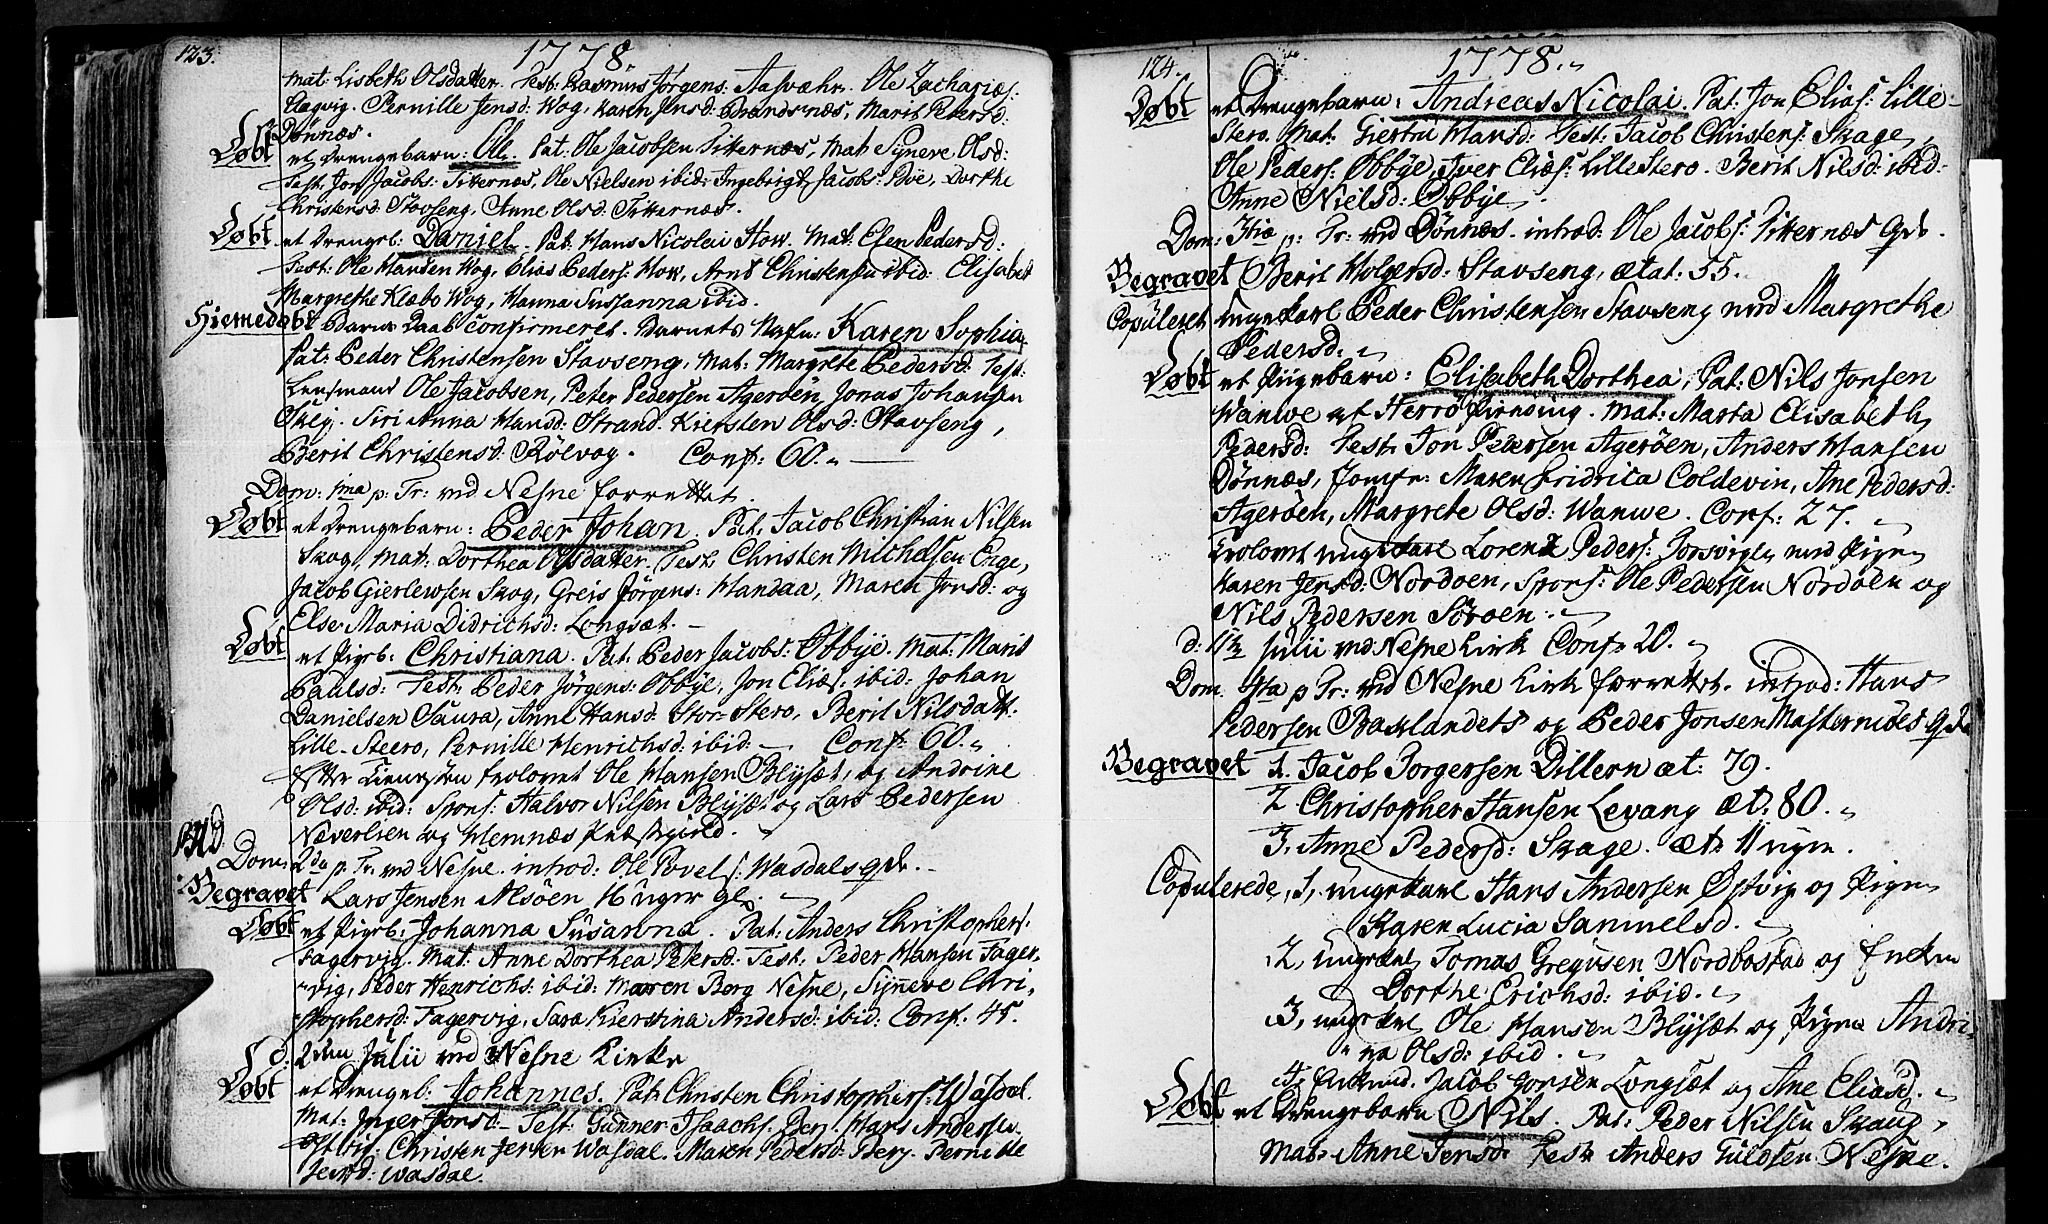 123.
1778
Mat: Lisbeth Olsdatter. Test: Rasmus Jørgens: Aasvær. Ole Zachariæs:
Pernille Jensd: Wog, Karen Jensd: Brandsnæs, Marit Petersd:
Dønnæs.
Døbt et Drengebarn: Ole. Pat: Ole Jacobsen Titternæs, Mat Syneve Olsd:
Test: Jon Jacobs: Titternæs, Ole Nielsen ibid: Ingebrigt Jacobs: Bøe, Dorthe
Christensd: Stavseng, Anne Olsd: Titternæs.
Døbt et Drengeb: Daniel. Pat: Hans Nicolai How. Mat: Esen Pedersd:
Test: Ole Hansen Wog, Elias Peders: How, Arnt Christensen ibid: Elisabet
Margrethe Klæbo Wog, Hanna Susanna ibid.
Hiemedøbt Barns Daab confirmeret. Barnets Nafn: Karen Sophia
Pat: Peder Christensen Stavseng, Mat: Margrete Pedersd: Test:
Lensmand Ole Jacobsen, Peter Pedersen Agerøen, Jonas Johansen
Skej. Siri Anna Hansd: Strand. Kiersten Olsd: Stavseng,
Berit Christensd: Rølvog. Conf: 60.
Dom: 1ma p: Tr: ved Nesne forrettet.
Døbt et Drengebarn: Peder Johan. Pat: Jacob Christian Nilsen
Skog, Mat: Dorthea Olsdatter. Test: Christen Michelsen Enge,
Jacob Gierlewsen Skog, Greis Jörgens: Handaa, Maren Jonsd: og
Else Maria Didrichsd: Longsæt.
Døbt et Pigeb: Christiana. Pat: Peder Jacobs: Obbÿe. Mat: Marit
Paulsd: Test: Peder Jörgens: Obbÿe, Jon Eliæs: ibid: Johan
Danielsen Saura, Anne Hansd: Stor-Stero, Berit Nilsdatt:
Lille-Steero, Pernille Henrichsd: ibid: Conf: 60.
Efter Tienesten trolovet Ole Hansen Blijsæt, og Andrine
Olsd: ibid: Spons: Halvor Nilsen Blijsæt og Lars Pedersen
Næverlien og Hemnæs Præstegield.
Dom: 2da p: Tr: ved Nesne. introd: Ole Povels: Wasdals qde.
Begravet Lars Jensen Alsöen 14 uger gl.
Døbt et Pigeb: Johanna Susanna. Pat: Anders Christophers:
Fagervig. Mat: Anne Dorthea Petersd: Test: Peder Hansen Fager-
vig, Peder Henrichs: ibid: Maren Berg Nesne, Synneve Chri-
stophersd: Fagervig, Sara Kierstina Andersd: ibid: Conf: 45.
d: 2den Julii ved Nesne Kirke
Døbt et Drengeb: Johannes. Pat: Christen Christophers: Wasdal.
Mat: Inger Jonsd: Test: Gunner Isaachs: Berg. Hans Andersen
Østvig: Christen Jensen Wasdal. Maren Pedersd: Berg. Pernille
Jensd: Wasdal.
124.
1778.
Døbt et Drengebarn: Andreas Nicolai. Pat: Jon Elias: Lille-
Stero. Mat: Giertru Hansd: Test: Jacob Christens: Skage,
Ole Peders: Obbÿe, Iver Eliæs: Lille Stero. Berit Nilsd: ibid:
Anne Nielsd: Obbÿe.
Dom: 3tia p: Tr: ved Dönnæs. introd: Ole Jacobs: Titternæs qde.
Begravet Berit Holgersd: Stavseng, ætat: 55.
Copuleret Ungekarl Peder Christensen Stavseng med Margrethe
Pedersd:
Døbt et Pigebarn: Elisabeth Dorthea, Pat: Nils Jonsen
Wanwe af Herrö Mat: Marta Elisabeth
Pedersd: Test: Jon Petersen Agerøen, Anders Hansen
Dönnæs, Jomfr: Maren Fridrica Coldevin, Ane Pedersd:
Agerøen, Margrete Olsd: Wanwe. Conf: 27.
Trolovet ungekarl Lorentz Peders: Forsvigen med Pigen
Karen Jensd: Nordöen, Spons: Ole Pedersen Nordöen og
Nils Pedersen Söröen.
d: 11te Julii ved Nesne Kirk Conf: 20.
Dom. 4ta p Tr: ved Nesne Kirk forrettet. introd: Hans
Pedersen Baklandets og Peder Jonsen Masternæses qde
Begravet 1. Jacob Jorgersen Dillern æt: 79.
2 Christopher Hansen Levang æt: 80.
3, Anne Pedersd: Skage. æt: 11 ugen.
Copulerede, 1, ungekarl Hans Andersen Østvig og Pigen
Karen Lucia Samuelsd.
2, ungekarl Tomas Gregusen Nordbostad og Enken
Dorthe Erichsd: ibid.
3, ungekarl Ole Hansen Blijsæt og Pigen Andri-
na Olsd: ibid.
4, Enkmd. Jacob Jonsen Longsæt og Ane Eliasd.
Døbt et Drengebarn Nils. Pat: Peder Nilsen Skaug,
Mat: Anne Jensd: Test: Anders Guldsen Nesne.